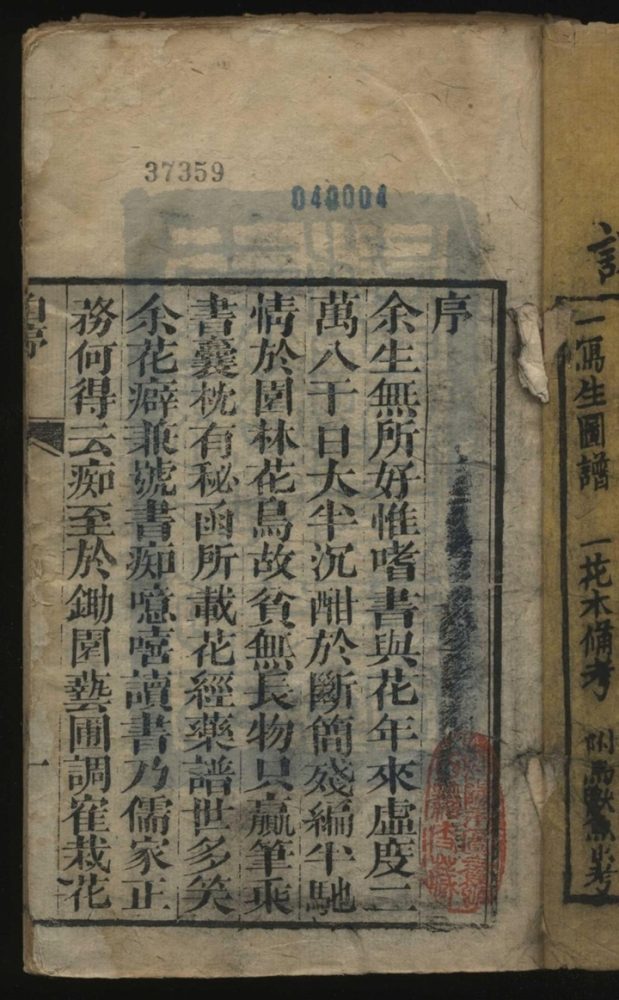 一寫生圖譜 一花木備考
37359
040004
序
余生無所好惟嗜書與花年來虛度二
萬八千日大半沉酣於斷簡殘編半馳
情於園林花鳥故貧無長物只贏筆乘
書囊枕有秘函所載花經藥譜世多笑
余花癖兼號書痴噫嘻讀書乃儒家正
務何得云痴至於鋤園藝圃調寉栽花
一